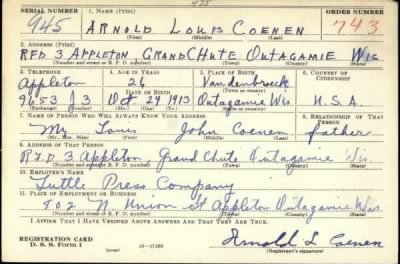 SERIAL NUMBER 1. NAME (Print) ORDER NUMBER
945 ARNOLD LOUIS COENEN 743
(First) (Middle) (Last)
2. ADDRESS (Print)
RFD 3 APPLETON GRAND CHUTE OUTAGAMIE WIS.
(Number and street or R. F. D. number) (Town) (County) (State)
3. TELEPHONE 4. AGE IN YEARS 5. PLACE OF BIRTH 6. COUNTRY OF CITIZENSHIP
Appleton 26 Vandenbroeck
DATE OF BIRTH
9653 J 3 Oct 29 1913 Outagamie Wis. U.S.A.
(Exchange) (Number) (Mo.) (Day) (Yr.) (State or country)
7. NAME OF PERSON WHO WILL ALWAYS KNOW YOUR ADDRESS 8. RELATIONSHIP OF THAT PERSON
Mr. Louis John Coenen father
(Mr., Mrs., Miss) (First) (Middle) (Last)
9. ADDRESS OF THAT PERSON
R.F.D. 3 Appleton, Grand Chute Outagamie Wis.
(Number and street or R. F. D. number) (Town) (County) (State)
10. EMPLOYER'S NAME
Tuttle Press Company
11. PLACE OF EMPLOYMENT OR BUSINESS
802 N. Union St Appleton Outagamie Wis.
(Number and street or R. F. D. number) (Town) (County) (State)
I AFFIRM THAT I HAVE VERIFIED ABOVE ANSWERS AND THAT THEY ARE TRUE.
REGISTRATION CARD
D. S. S. Form 1 16-17105 Arnold L Coenen
(Registrant's signature)